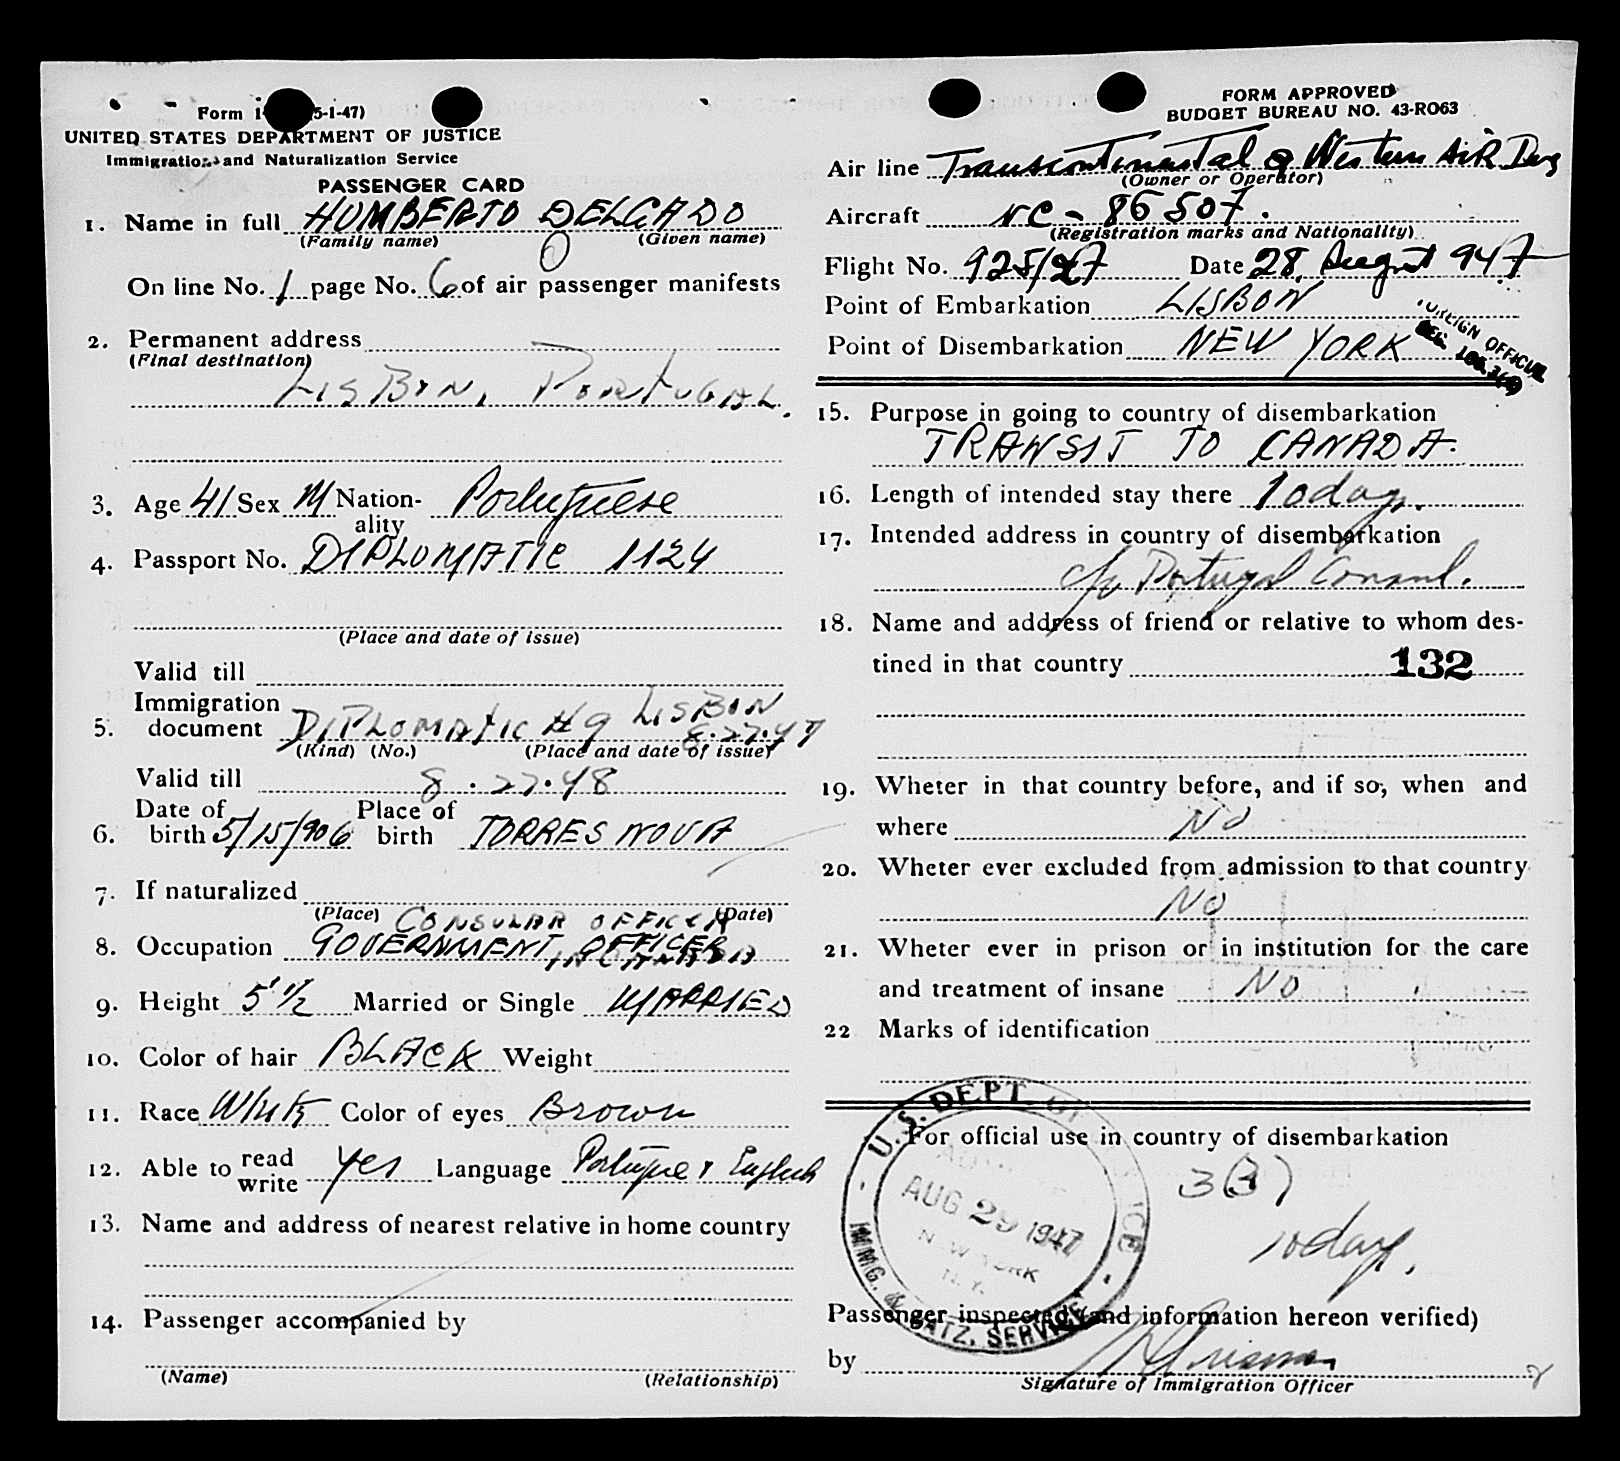 Form I- (5-1-47)
UNITED STATES DEPARTMENT OF JUSTICE
Immigration and Naturalization Service
PASSENGER CARD
1. Name in full HUMBERTO DELGADO
(Family name) (Given name)
On line No. 1 page No. 6 of air passenger manifests
2. Permanent address
(Final destination)
LISBON, PORTUGAL.
3. Age 41 Sex M Nation-
ality Portuguese
4. Passport No. DIPLOMATIC 1124
(Place and date of issue)
Valid till
5. Immigration
document DIPLOMATIC #9 LISBON
8.27.47
(Kind) (No.) (Place and date of issue)
Valid till 8.27.48
6. Date of
birth 5/15/906 Place of
birth TORRES NOVA
7. If naturalized
(Place) (Date)
CONSULAR OFFICER
8. Occupation GOVERNMENT OFFICER
IN CANADA
9. Height 5' ½ Married or Single MARRIED
10. Color of hair BLACK Weight
11. Race White Color of eyes Brown
12. Able to read
write yes Language Portugue & English
13. Name and address of nearest relative in home country
14. Passenger accompanied by
(Name) (Relationship)
FORM APPROVED
BUDGET BUREAU NO. 43-RO63
Air line Transcontinental & Western AiR
(Owner or Operator)
Aircraft NC-86507.
(Registration marks and Nationality)
Flight No. 925/27 Date 28 August 947
Point of Embarkation LISBON
Point of Disembarkation NEW YORK
FOREIGN OFFICIAL
15. Purpose in going to country of disembarkation
TRANSIT TO CANADA.
16. Length of intended stay there 10 days.
17. Intended address in country of disembarkation
c/o Portugal Consul.
18. Name and address of friend or relative to whom des-
tined in that country 132
19. Wheter in that country before, and if so, when and
where NO
20. Wheter ever excluded from admission to that country
NO
21. Wheter ever in prison or in institution for the care
and treatment of insane NO
22 Marks of identification
For official use in country of disembarkation
3(3)
10 days.
U.S. DEPT. OF JUSTICE
AUG 29 1947
NEW YORK
N.Y.
IMMG. & NATZ. SERVICE
Passenger inspected (and information hereon verified)
by
Signature of Immigration Officer